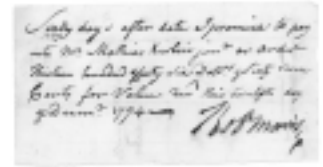 Sixty days after date I promise to pay
unto Mr. Mathias Keelin junr. or order
Thirteen hundred fifty six Dollrs & sixty
Cents for Value recd this twelfth day
of Decemr. 1794
Thos Morris